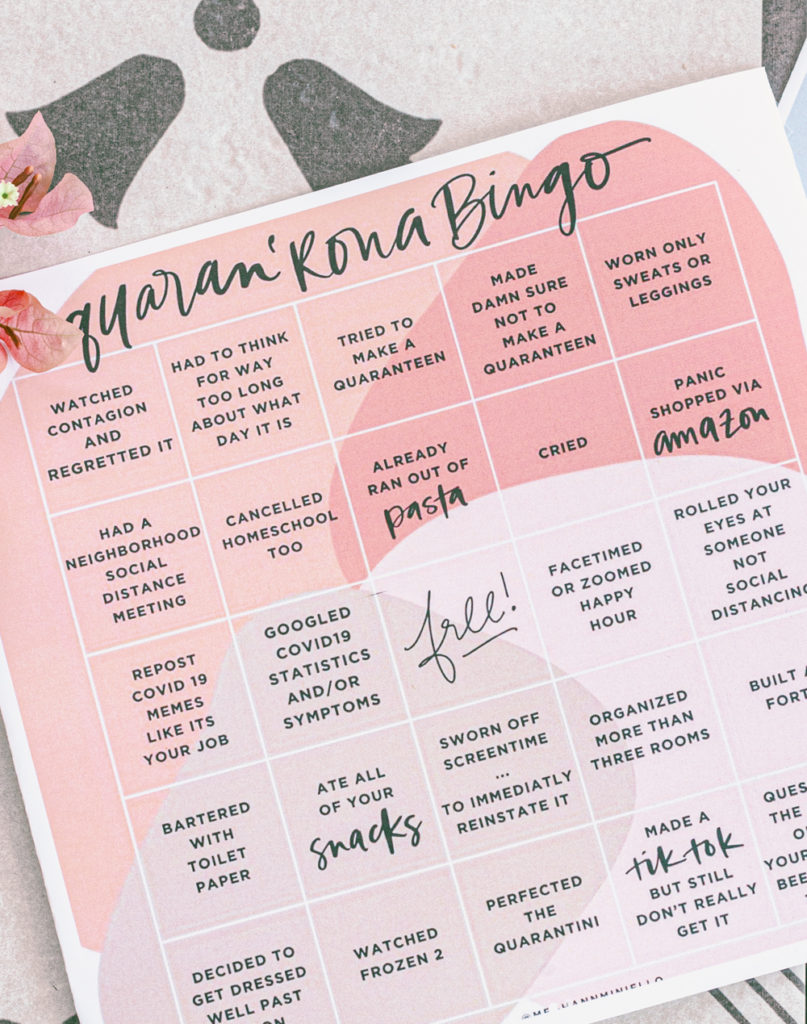 quaran'Rona Bingo
WATCHED
CONTAGION
AND
REGRETTED IT
HAD TO THINK
FOR WAY
TOO LONG
ABOUT WHAT
DAY IT IS
TRIED TO
MAKE A
QUARANTEEN
MADE
DAMN SURE
NOT TO
MAKE A
QUARANTEEN
WORN ONLY
SWEATS OR
LEGGINGS
HAD A
NEIGHBORHOOD
SOCIAL
DISTANCE
MEETING
CANCELLED
HOMESCHOOL
TOO
ALREADY
RAN OUT OF
pasta
CRIED
PANIC
SHOPPED VIA
amazon
REPOST
COVID 19
MEMES
LIKE ITS
YOUR JOB
GOOGLED
COVID19
STATISTICS
AND/OR
SYMPTOMS
free!
FACETIMED
OR ZOOMED
HAPPY
HOUR
ROLLED YOUR
EYES AT
SOMEONE
NOT
SOCIAL
DISTANCING
BARTERED
WITH
TOILET
PAPER
ATE ALL
OF YOUR
snacks
SWORN OFF
SCREENTIME
...
TO IMMEDIATLY
REINSTATE IT
ORGANIZED
MORE THAN
THREE ROOMS
BUILT A
FORT
DECIDED TO
GET DRESSED
WELL PAST
WATCHED
FROZEN 2
PERFECTED
THE
QUARANTINI
MADE A
tik tok
BUT STILL
DON'T REALLY
GET IT
THE
YOUR